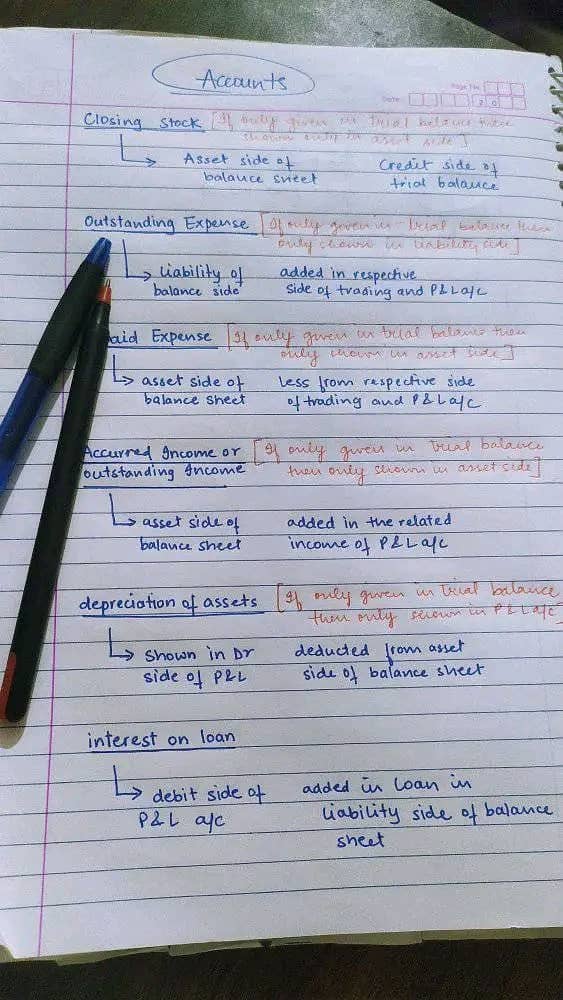 Accounts
Page No.
Date: 20
Closing stock [If only given in trial balance then
shown only in asset side]
Asset side of balance sheet Credit side of trial balance
Outstanding Expense [If only given in trial balance then
only shown in liability side]
Liability of balance side added in respective side of trading and P&L a/c
aid Expense [If only given in trial balance then
only shown in asset side]
asset side of balance sheet Less from respective side of trading and P&L a/c
Accurred Income or [If only given in trial balance
outstanding Income then only shown in asset side]
asset side of balance sheet added in the related income of P&L a/c
depreciation of assets [If only given in trial balance
then only shown in P&L a/c]
Shown in Dr side of P&L deducted from asset side of balance sheet
interest on loan
debit side of P&L a/c added in Loan in liability side of balance sheet